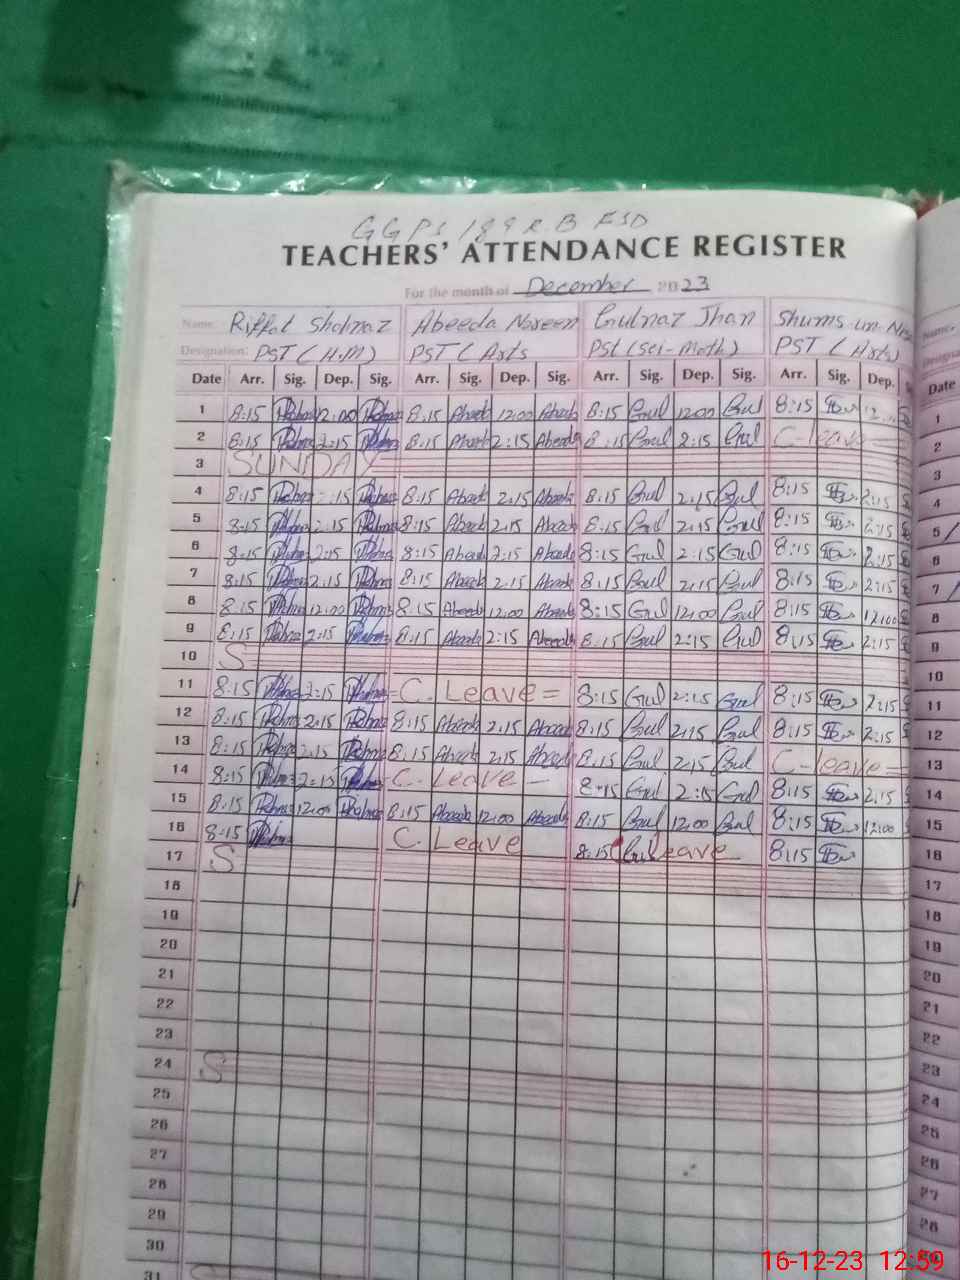 GGPS 189 R.B FSD
TEACHERS' ATTENDANCE REGISTER
For the month of December 2023
Name: Riffat Shahnaz Abeeda Noreen Gulnaz Jhan Shums un
Designation: PST (H.M) PST (Arts PST (Sci-Math) PST (Arts)
Date Arr. Sig. Dep. Sig. Arr. Sig. Dep. Sig. Arr. Sig. Dep. Sig. Arr. Sig. Dep.
1 8:15 12:00 8:15 Abeeda 12:00 Abeeda 8:15 Gul 12:00 Gul 8:15
2 8:15 2:15 8:15 Abeeda 2:15 Abeeda 8:15 Gul 2:15 Gul C-leave
3 SUNDAY
4 8:15 8:15 Abeeda 2:15 Abeeda 8:15 Gul 2:15 Gul 8:15 2:15
5 8:15 8:15 Abeeda 2:15 Abeeda 8:15 Gul 2:15 Gul 8:15 2:15
6 8:15 2:15 8:15 Abeeda 2:15 Abeeda 8:15 Gul 2:15 Gul 8:15 2:15
7 8:15 2:15 8:15 Abeeda 2:15 Abeeda 8:15 Gul 2:15 Gul 8:15 2:15
8 8:15 12:00 8:15 Abeeda 12:00 Abeeda 8:15 Gul 12:00 Gul 8:15 12:00
9 8:15 2:15 8:15 Abeeda 2:15 Abeeda 8:15 Gul 2:15 Gul 8:15 2:15
10 S
11 8:15 2:15 C. Leave = 8:15 Gul 2:15 Gul 8:15 2:15
12 8:15 2:15 8:15 Abeeda 2:15 Abeeda 8:15 Gul 2:15 Gul 8:15 2:15
13 8:15 2:15 8:15 Abeeda 2:15 Abeeda 8:15 Gul 2:15 Gul C-leave =
14 8:15 2:15 C. Leave - 8:15 Gul 2:15 Gul 8:15 2:15
15 8:15 12:00 8:15 Abeeda 12:00 Abeeda 8:15 Gul 12:00 Gul 8:15 12:00
16 8:15 C. Leave 8:15 Leave 8:15
17 S
18
19
20
21
22
23
24 S
25
26
27
28
29
30
31
Name:
Date
1
2
3
4
5
6
7
8
9
10
11
12
13
14
15
16
17
18
19
20
21
22
23
24
25
26
27
28
16-12-23 12:59